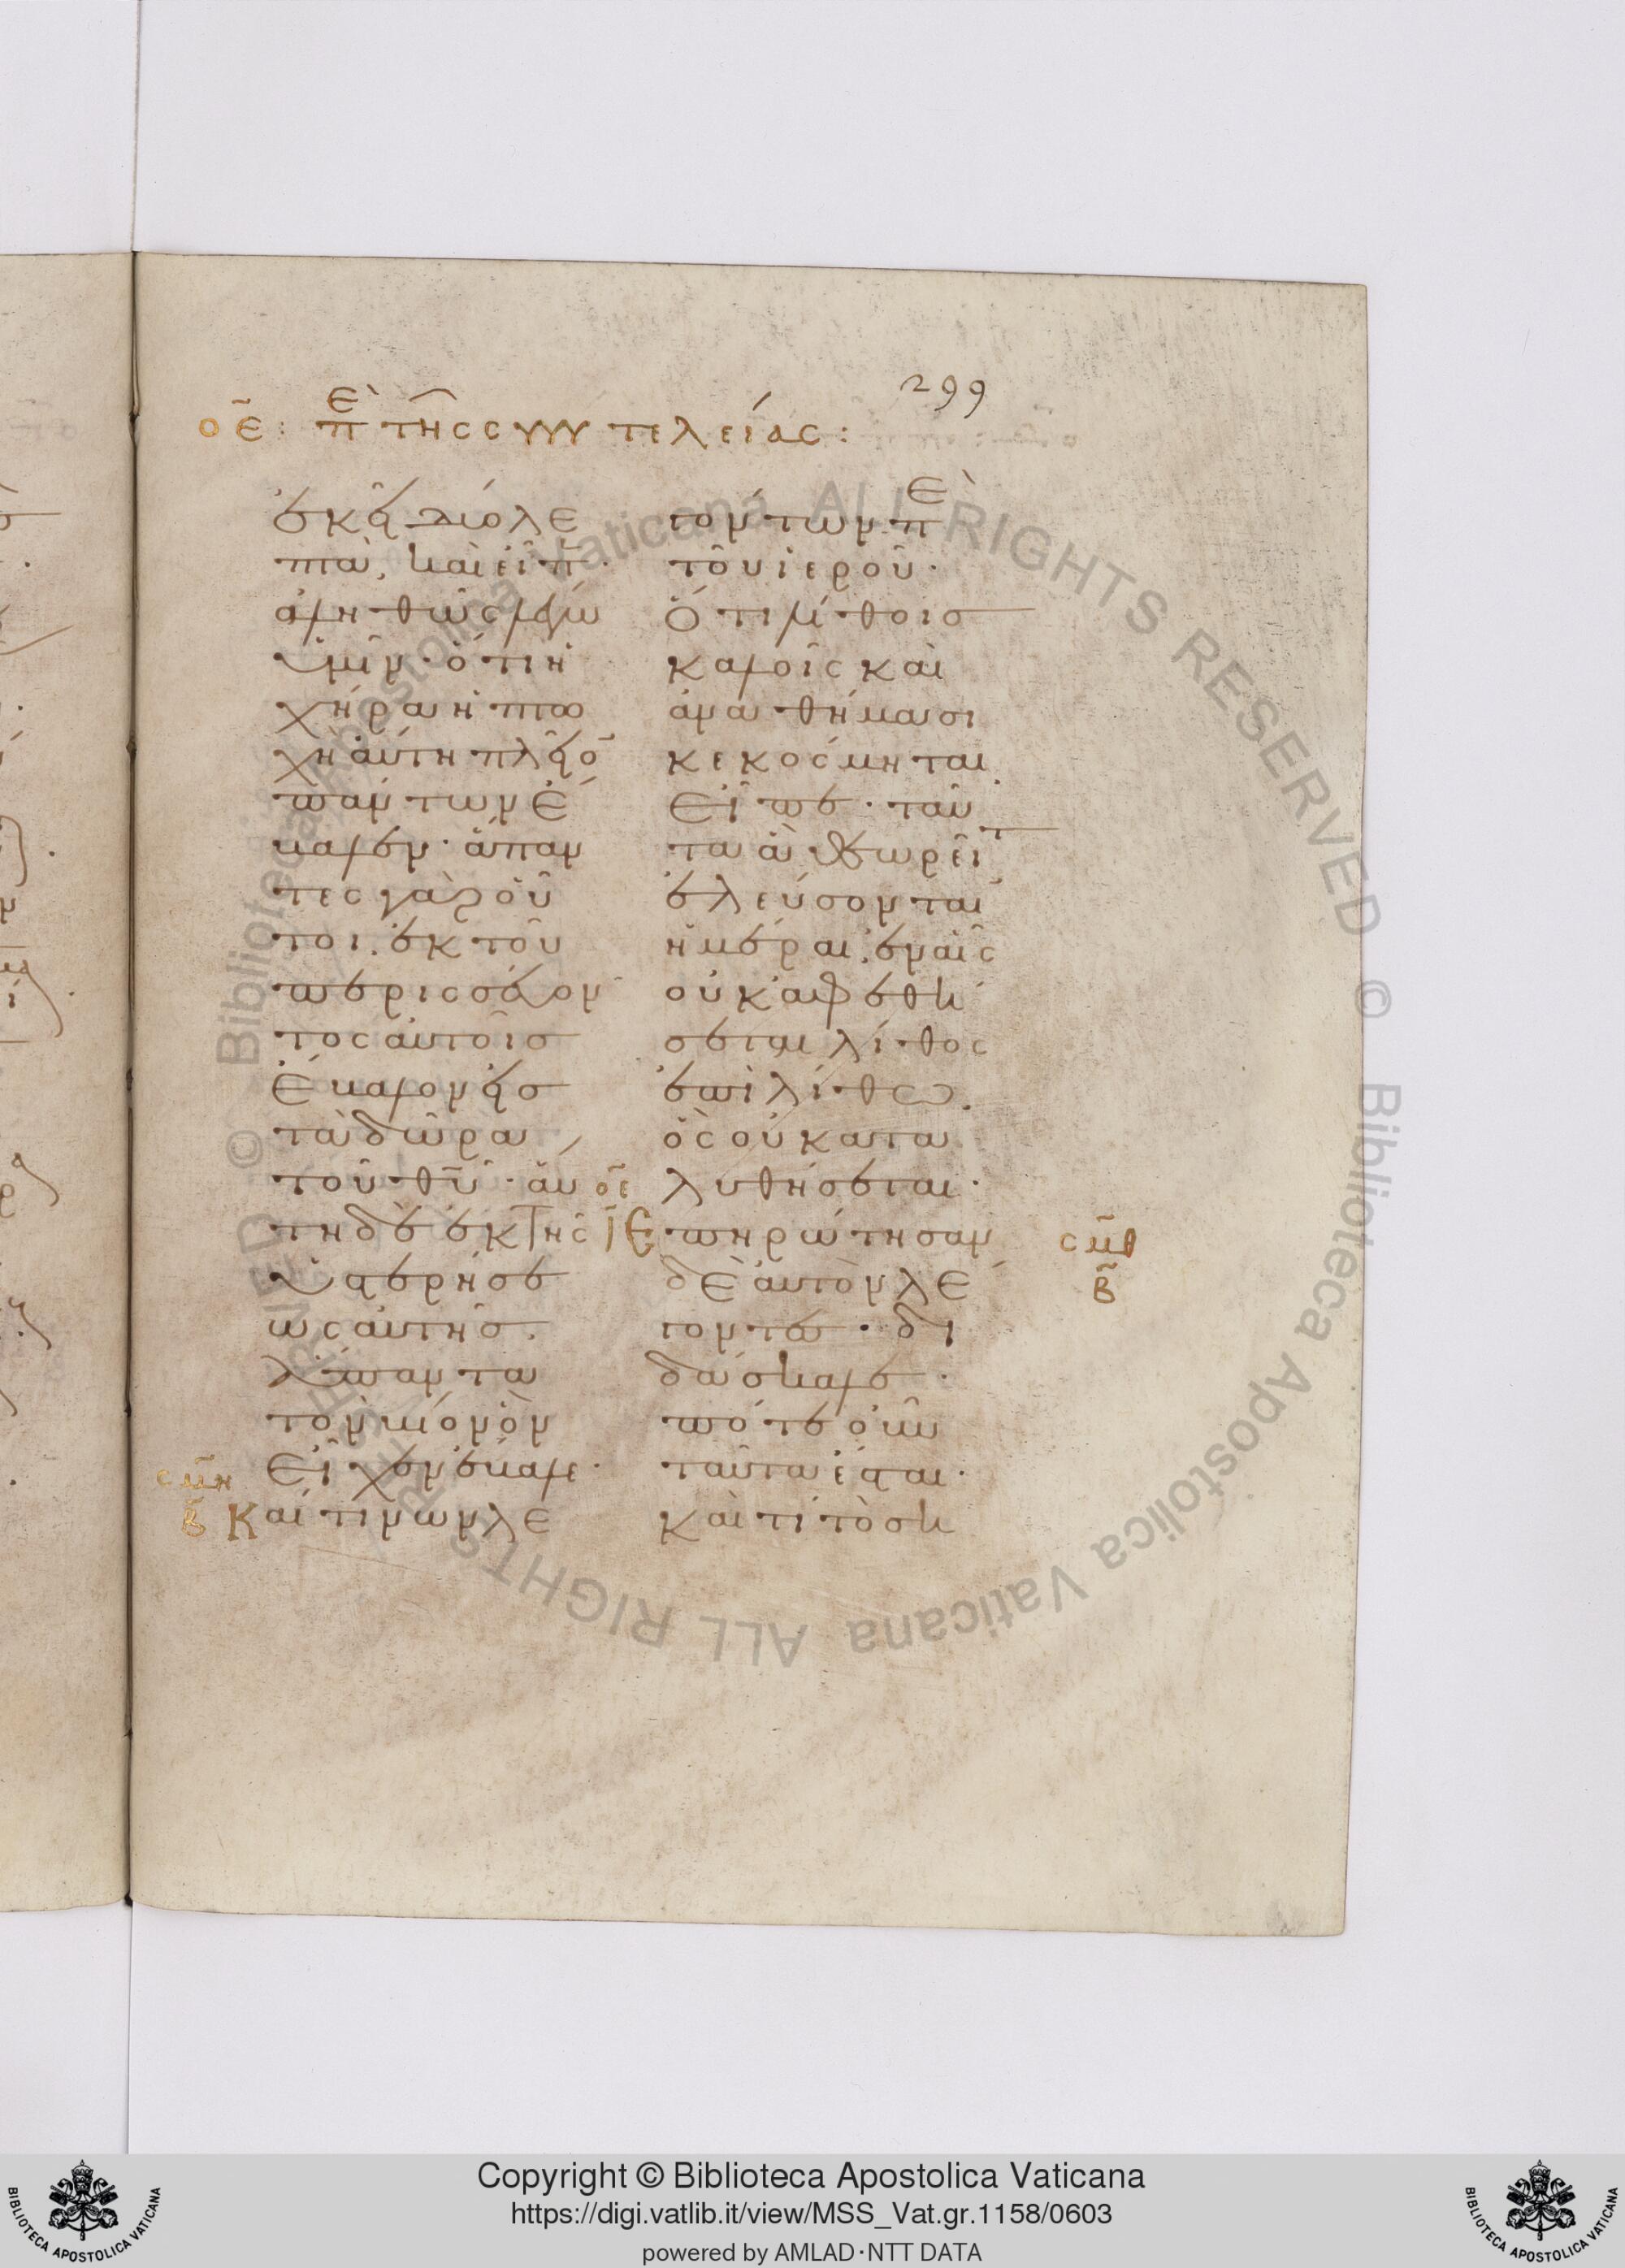 299
οε: πε τῆς συντελείας:
ἐκεῖ δύο λε
πτά, καὶ εἶπ̅·
ἀληθῶς λέγω
ὑμῖν· ὅτι ἡ
χήρα ἡ πτω
χὴ αὕτη πλεῖο̅
πάντων ἔ
βαλεν· ἅπαν
τες γὰρ οὗ
τοι, ἐκ τοῦ
περισσεύον
τος αὐτοῖσ
ἔβαλον εἰσ
τὰ δῶρα
τοῦ θ̅υ̅· αὕ
τη δὲ ἐκ τῆς
ὑστερήσε
ως αὐτῆσ.
ἅπαντα
τὸν βίον ὃν
εἶχεν ἔβαλε·
σμη
β
Καί τινων λε
γόντων πε
τοῦ ἱεροῦ·
Ὅτι λίθοισ
καλοῖς καὶ
ἀναθήμασι
κεκόσμηται.
Εἶπε· ταῦ
τα ἃ θεωρεῖτ
ἐλεύσονται
ἡμέραι, ἐν αἷς
οὐκ ἀφεθή
σεται λίθος
ἐπὶ λίθω.
ὃς οὐ κατα
λυθήσεται·
οε
Ἐπηρώτησαν
δὲ αὐτὸν λέ
γοντεσ· δι
δάσκαλε·
πότε οὖν
ταῦτα ἔσται·
καὶ τί τὸ ση
σμθ
β
Copyright © Biblioteca Apostolica Vaticana
https://digi.vatlib.it/view/MSS_Vat.gr.1158/0603
powered by AMLAD·NTT DATA
BIBLIOTECA APOSTOLICA VATICANA
BIBLIOTECA APOSTOLICA VATICANA
© Biblioteca Apostolica Vaticana ALL RIGHTS RESERVED © Biblioteca Apostolica Vaticana ALL RIGHTS RESERVED